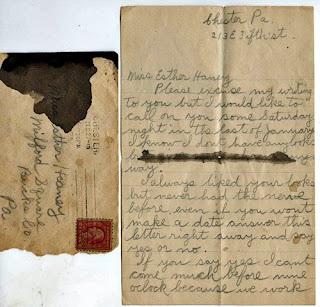 Chester Pa.
213 E Fifth st.
Miss Esther Haney
Please excuse my writing
to you but I would like to
call on you some Saturday
night in the last of January
I know I dont have any looks
way.
I always liked your looks
but never had the nerve
before, even if you wont
make a date answer this
letter right away and say
yes or no.
If you say yes I cant
come much before nine
oclock because we work
Esther Haney
Milford Square
Bucks Co
Pa.